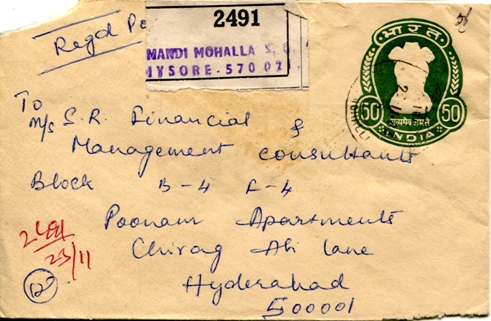 Regd Po
2491
MANDI MOHALLA S. O.
MYSORE-570 02
भारत
50 50
सत्यमेव जयते
INDIA
To
M/s S.R. Financial &
Management consultants
Block B-4 F-4
Poonam Apartments
Chirag Ali lane
Hyderabad
500001
2491
23/11